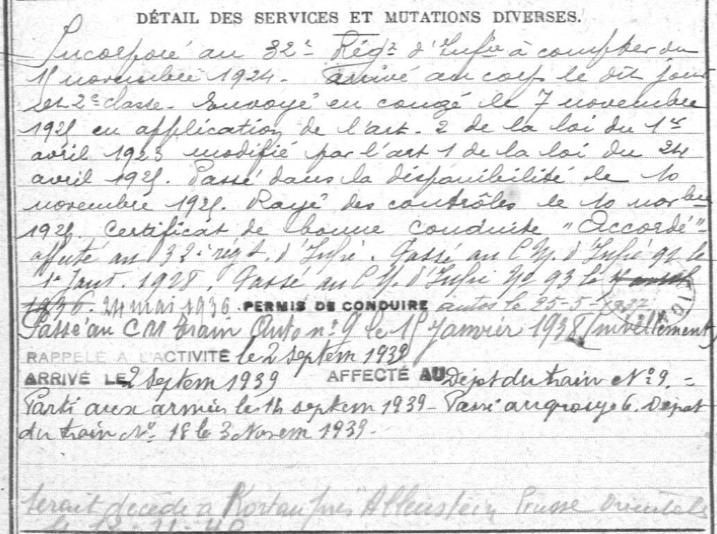 DÉTAIL DES SERVICES ET MUTATIONS DIVERSES.
Incorporé au 32e Régt d'Infie à compter du
11 novembre 1924. Arrivé au corps le dit jour
et 2e classe. Envoyé en congé le 7 novembre
1925 en application de l'art. 2 de la loi du 1er
avril 1923 modifié par l'art 1 de la loi du 24
avril 1925. Passé dans la disponibilité le 10
novembre 1925. Rayé des contrôles le 10 novbre
1925. Certificat de bonne conduite "Accordé"
affecté au 32e régt. d'Infie. Passé au C.M. d'Infie 92 le
1er Janv. 1928. Passé au C.M. d'Infie No 93 le
1936. 24 mai 1936. PERMIS DE CONDUIRE autos le 25-5-
Passé au CM train Auto no 9 le 15 janvier 1938 (nivellement)
RAPPELÉ A L'ACTIVITÉ le 2 septem 1939
ARRIVÉ LE 2 septem 1939 AFFECTÉ AU Dépot du train No 9. =
Parti aux armées le 14 septem 1939 - Passé au groupe 6. Dépot
du train No 18 le 3 Novem 1939.
serait décédé à près Allenstein Prusse Orientale